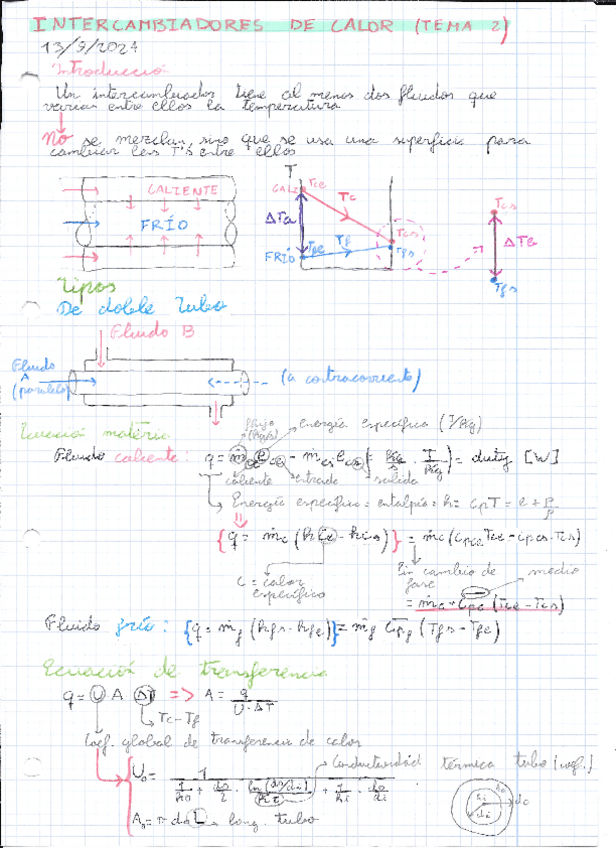 INTERCAMBIADORES DE CALOR (TEMA 2)
13/9/2024
Introducción
Un intercambiador tiene al menos dos fluidos que
varian entre ellos la temperatura
No se mezclan, sino que se usa una superficie para
cambiar las T's entre ellos
CALIENTE
FRÍO
T
CAL. Tce
Tc
ΔTa
Tcs
FRÍO Tfe
Tf
Tfs
Tcs
ΔTb
Tfs
Tipos
De doble tubo
Fluido B
Fluido
A
(paralelo)
(a contracorriente)
Ecuación
flujo
(kg/s)
energía específica (J/kg)
Fluido caliente:
= duty [W]
caliente
entrada
salida
Energía específica = entalpía = h = cpT = e + P/ρ
{q = ṁc (hce - hcs)} = ṁc (cpce Tce - cpcs Tcs)
c = calor
específico
Sin cambio de
fase
medio
= ṁc · cpc (Tce - Tcs)
Fluido frío: {q = ṁf (hfs - hfe)} = ṁf cpf (Tfs - Tfe)
Ecuación de transferencia
q = U A ΔT => A = q / U·ΔT
Tc - Tf
Coef. global de transferencia de calor
Conductividad térmica tubo
Uo = 1 / (1/ho + do/2 · ln(do/di)/k + 1/hi · do/di)
Ao = π do L long. tubo
ho
hi
di
do